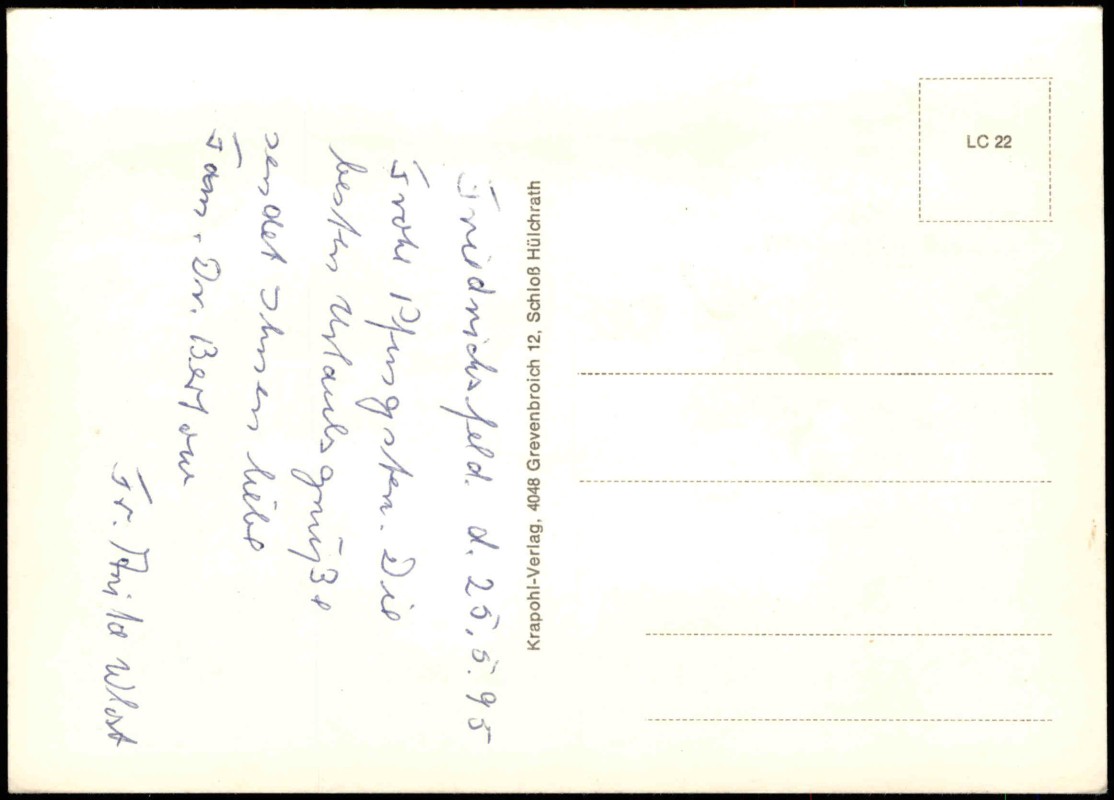 Friedrichsfeld. d. 25.5.95
Frohe Pfingsten. Die
besten Urlaubsgrüße
sendet Ihnen liebe
Fam. Dr. Bertow
Fr. Anita Wlost
Krapohl-Verlag, 4048 Grevenbroich 12, Schloß Hülchrath
LC 22